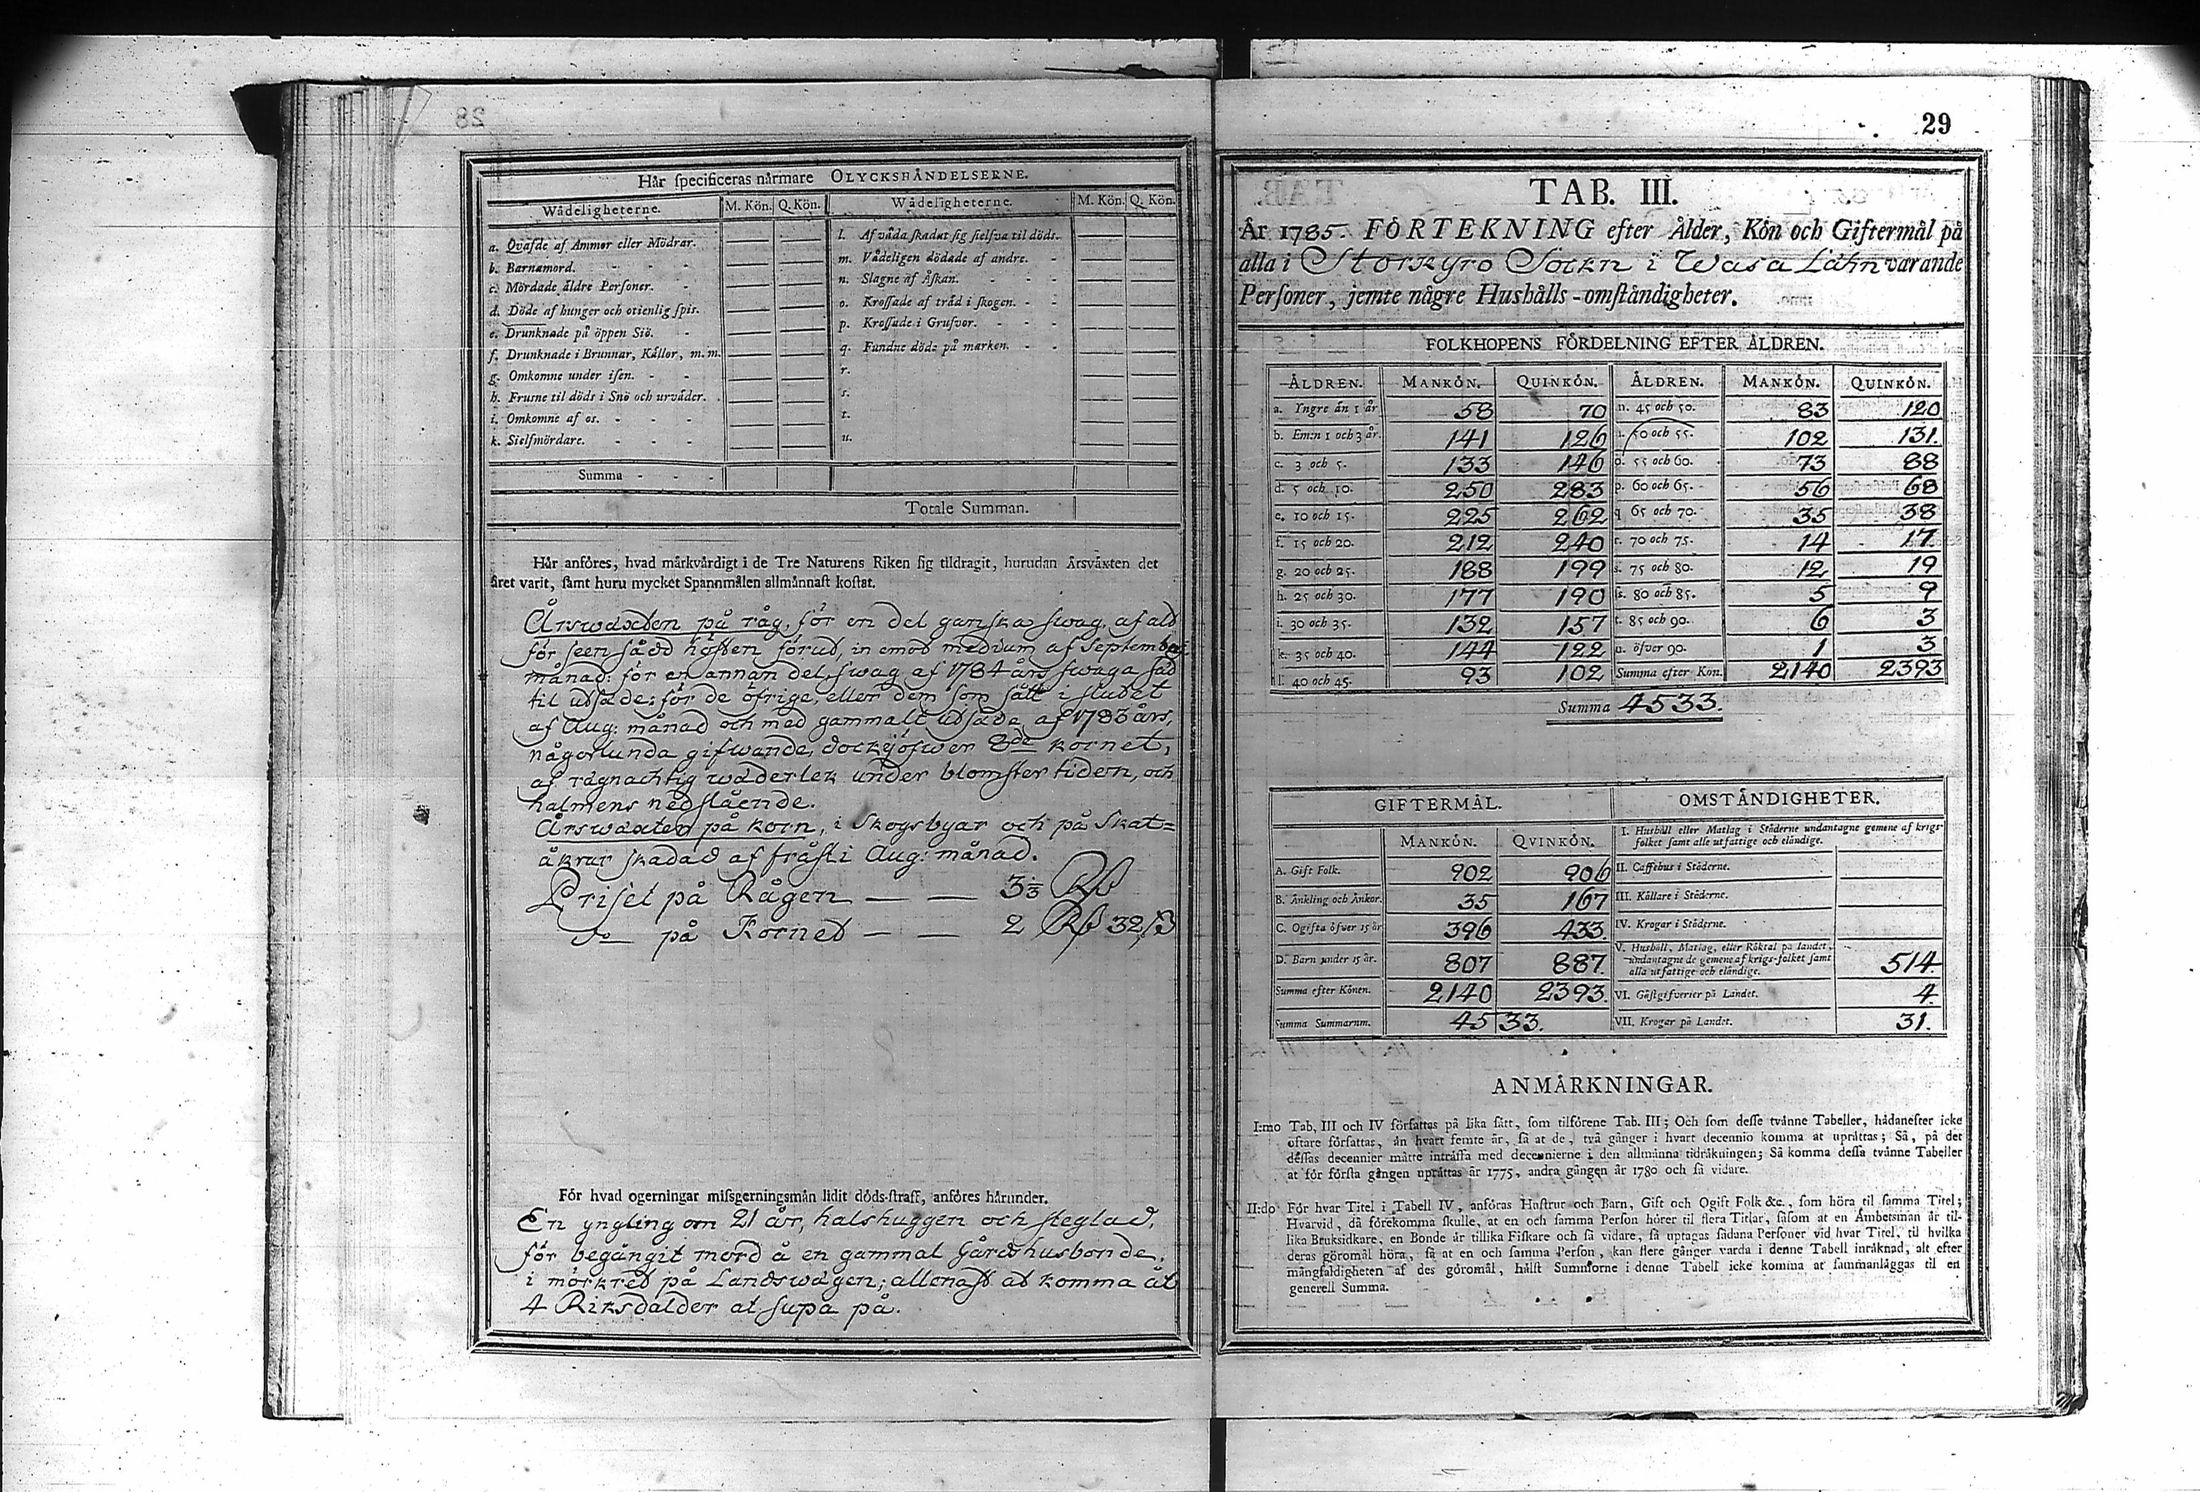 28
Här specificeras närmare OLYCKSHÄNDELSERNE.
Wådeligheterne. M. Kön. Q. Kön. Wådeligheterne. M. Kön. Q. Kön.
a. Qväfde af Ammor eller Mödrar. — — l. Af våda skadat sig sielfva til döds. — —
b. Barnamord. — — m. Vådeligen dödade af andre. — —
c. Mördade äldre Personer. — — n. Slagne af Åskan. — —
d. Döde af hunger och otienlig spis. — — o. Krossade af träd i skogen. — —
e. Drunknade på öppen Siö. — — p. Krossade i Grufvor. — —
f. Drunknade i Brunnar, Källor, m. m. — — q. Fundne döde på marken. — —
g. Omkomne under isen. — — r. — —
h. Frusne til döds i Snö och urväder. — — s. — —
i. Omkomne af os. — — t. — —
k. Sielfmördare. — — u. — —
Summa
Totale Summan.
Här anföres, hvad märkvärdigt i de Tre Naturens Riken sig tildragit, hurudan Årsväxten det
året varit, samt huru mycket Spannmålen allmännast kostat.
Årswäxten på råg, för en del ganska swag, af alt
för seen sådd hösten förut, in emot medium af September
månad: för en annan del, swag af 1784 års swaga säd
til utsäde: för de öfrige, eller dem som sått i slutet
af Aug: månad och med gammalt utsäde af 1783 års,
någorlunda gifwande, dock ej öfwer 8de kornet,
af rägnachtig wäderlek under blomster tiden, och
halmens nedslående.
Årswäxten på korn, i Skogsbyar och på Skat=
åkrar skadad af fråst i Aug: månad.
Priset på Rågen — — 3 1/3 Rß
Do på Kornet — — 2 Rß 32 ß
För hvad ogerningar missgerningsmän lidit döds-straff, anföres härunder.
En yngling om 21 år, halshuggen och steglad,
för begångit mord å en gammal Gårdshusbonde,
i mörkret på Landswägen; allenast at komma åt
4 Riksdalder at supa på.
29
TAB. III.
År 1785. FÖRTEKNING efter Ålder, Kön och Giftermål på
alla i Storkyro Sockn i Wasa Lähn varande
Personer, jemte någre Hushålls-omständigheter.
FOLKHOPENS FÖRDELNING EFTER ÅLDREN.
ÅLDREN. MANKÖN. QUINKÖN. ÅLDREN. MANKÖN. QUINKÖN.
a. Yngre än 1 år 58 70 n. 45 och 50. 83 120
b. Em:n 1 och 3 år. 141 126 50 och 55. 102 131.
c. 3 och 5. 133 146 o. 55 och 60. 73 88
d. 5 och 10. 250 283 p. 60 och 65. 56 68
e. 10 och 15. 225 262 q. 65 och 70. 35 38
f. 15 och 20. 212 240 r. 70 och 75. 14 17.
g. 20 och 25. 188 199 s. 75 och 80. 12 19
h. 25 och 30. 177 190 s. 80 och 85. 5 9
i. 30 och 35. 132 157 t. 85 och 90. 6 3
k. 35 och 40. 144 122 u. öfver 90. 1 3
l. 40 och 45. 93 102 Summa efter Kön. 2140 2393
Summa 4533.
GIFTERMÅL. OMSTÄNDIGHETER.
MANKÖN. QVINKÖN. I. Hushåll eller Matlag i Städerne undantagne gemene af krigs-
folket samt alle utfattige och eländige.
A. Gift Folk. 902 906 II. Caffehus i Städerne.
B. Änkling och Änkor. 35 167 III. Källare i Städerne.
C. Ogifta öfver 15 år 396 433. IV. Krogar i Städerne.
D. Barn under 15 år. 807 887. V. Hushåll, Matlag, eller Röktal på landet,
undantagne de gemene af krigs-folket samt
alla utfattige och eländige. 514.
Summa efter Könen. 2140 2393. VI. Gästgifverier på Landet. 4.
Summa Summarum. 4533. VII. Krogar på Landet. 31.
ANMÄRKNINGAR.
I:mo Tab. III och IV författas på lika sätt, som tilförene Tab. III; Och som desse tvänne Tabeller, hädanefter icke
oftare författas, än hvart femte år, så at de, två gånger i hvart decennio komma at uprättas; Så, på det
dessas decennier måtte inträffa med decennierne i den allmänna tidräkningen; Så komma dessa tvänne Tabeller
at för första gången uprättas år 1775, andra gången år 1780 och så vidare.
II:do För hvar Titel i Tabell IV, anföras Hustrur och Barn, Gift och Ogift Folk &c., som höra til samma Titel;
Hvarvid, då förekomma skulle, at en och samma Person hörer til flera Titlar, såsom at en Ämbetsman är til-
lika Bruksidkare, en Bonde är tillika Fiskare och så vidare, så uptagas sådana Personer vid hvar Titel, til hvilka
deras göromål höra, så at en och samma Person, kan flere gånger varda i denne Tabell inräknad, alt efter
mångfaldigheten af des göromål, hälst Summorne i denne Tabell icke komma at sammanläggas til en
generell Summa.